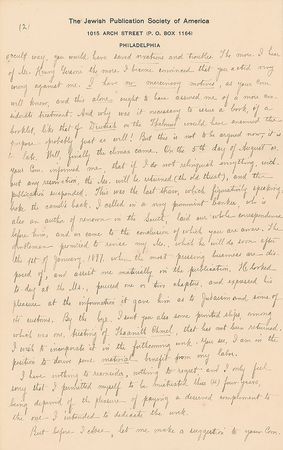 The Jewish Publication Society of America
1015 ARCH STREET (P. O. BOX 1164)
PHILADELPHIA
(2)
way, you would have saved and trouble. The more I hear
of Mr. Henry the more I become convinced that you acted very
wrong against me. I have no mercenary motive, as your Com.
well know, and this alone ought to have assured me of a more con-
siderate treatment. And why was it necessary to issue a book, or a
booklet, like that of Deutsch on the Talmud would have answered the
purpose probably just as well! But this is not to be argued now; it is
late. Well, finally the climax came. On the 5th day of August a.c.
your Com. informed me, that if I do not relinquish everything, with-
out any reservation, the Ms. will be returned (the old threat), and the
publication suspended. This was the last straw, which figuratively speaking
broke the camel's back. I called in a very prominent Banker, who is
also an author of renown in the South, laid our whole correspondence
before him, and we came to the conclusion of which you are aware. The
gentleman promised to revise my Ms., which he will do soon after
the 1st of January, 1897, when the most pressing business are dis-
posed of, and assist me materially in the publication. He looked
to-day at the Ms., perused one or two chapters, and expressed his
pleasure at the information it gave him as to Judaism and some of
its customs. By the bye. I sent you also some printed slips among
which was one, treating of that has not been returned.
I wish to incorporate it in the forthcoming work. You see, I am in the
position to derive some material benefit from my labor.
I have nothing to reconsider, nothing to regret, and I only feel
sorry that I permitted myself to be mistreated thus (4) four years,
being deprived of the pleasure of paying a deserved compliment to
the one I intended to dedicate the work.
But before I close, let me make a suggestion to your Com.